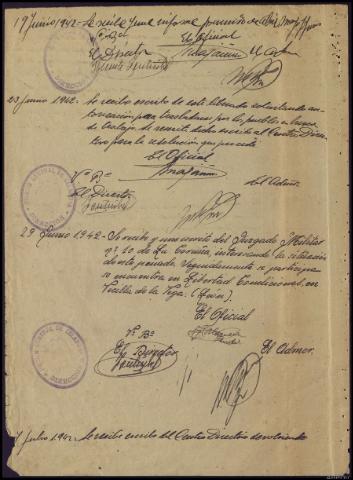 19 Junio 1942 - Se recibe y une informe
Vº Bº El Oficial
El Director El Admor
23 junio 1942. - Se recibe escrito de este liberado solicitando au-
torización para trasladarse por los pueblos en busca
de trabajo, se remite dicho escrito al Centro Direc-
tivo para la resolución que proceda
El Oficial
Vº Bº El Admor.
El Director
29 Junio 1942 - Se recibe y une escrito del Juzgado Militar
nº 20 de La Coruña, interesando la situación
de este penado. Seguidamente se participa
se encuentra en Libertad Condicional, en
Vecilla de la Vega. (León).
El Oficial
Vº Bº
El Director El Admor.
Julio 1942. - Se recibe escrito del Centro Directivo